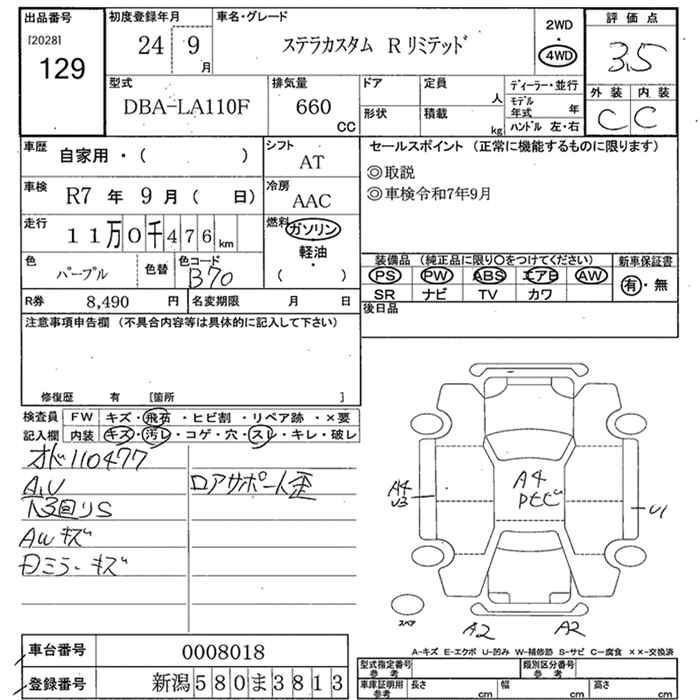 出品番号 初度登録年月 車名・グレード 2WD 評価点
[2028] 129 24 9月 ステラカスタム R リミテッド ・ 4WD 3.5
型式 排気量 ドア 定員 人 ディーラー・並行 外装 内装
DBA-LA110F 660 CC 形状 積載 kg モデル年式 年 C C
ハンドル 左・右
車歴 自家用・( ) シフト AT セールスポイント (正常に機能するものに限ります)
◎取説
車検 R7年 9月 ( 日) 冷房 AAC ◎車検令和7年9月
走行 11万0千476km 燃料 ガソリン・軽油・( )
色 パープル 色替 色コード B70
装備品 (純正品に限り○をつけてください) 新車保証書
PS PW ABS エアB AW 有・無
SR ナビ TV カワ
R券 8,490円 名変期限 月 日 後日品
注意事項申告欄 (不具合内容等は具体的に記入して下さい)
修復歴 有 [箇所 ]
検査員 FW キズ・飛石・ヒビ割・リペア跡・×要
記入欄 内装 キズ・汚レ・コゲ・穴・スレ・キレ・破レ
オド110477
A,U ロアサポート歪
AWキズ
ミラーキズ
A4
A4 U3
U1
A2 A2
スペア
A-キズ E-エクボ U-凹み W-補修跡 S-サビ C-腐食 ××-交換済
車台番号 0008018
登録番号 新潟580ま3813
型式指定番号 参考 類別区分番号 参考
車庫証明用 参考 長さ cm 幅 cm 高さ cm